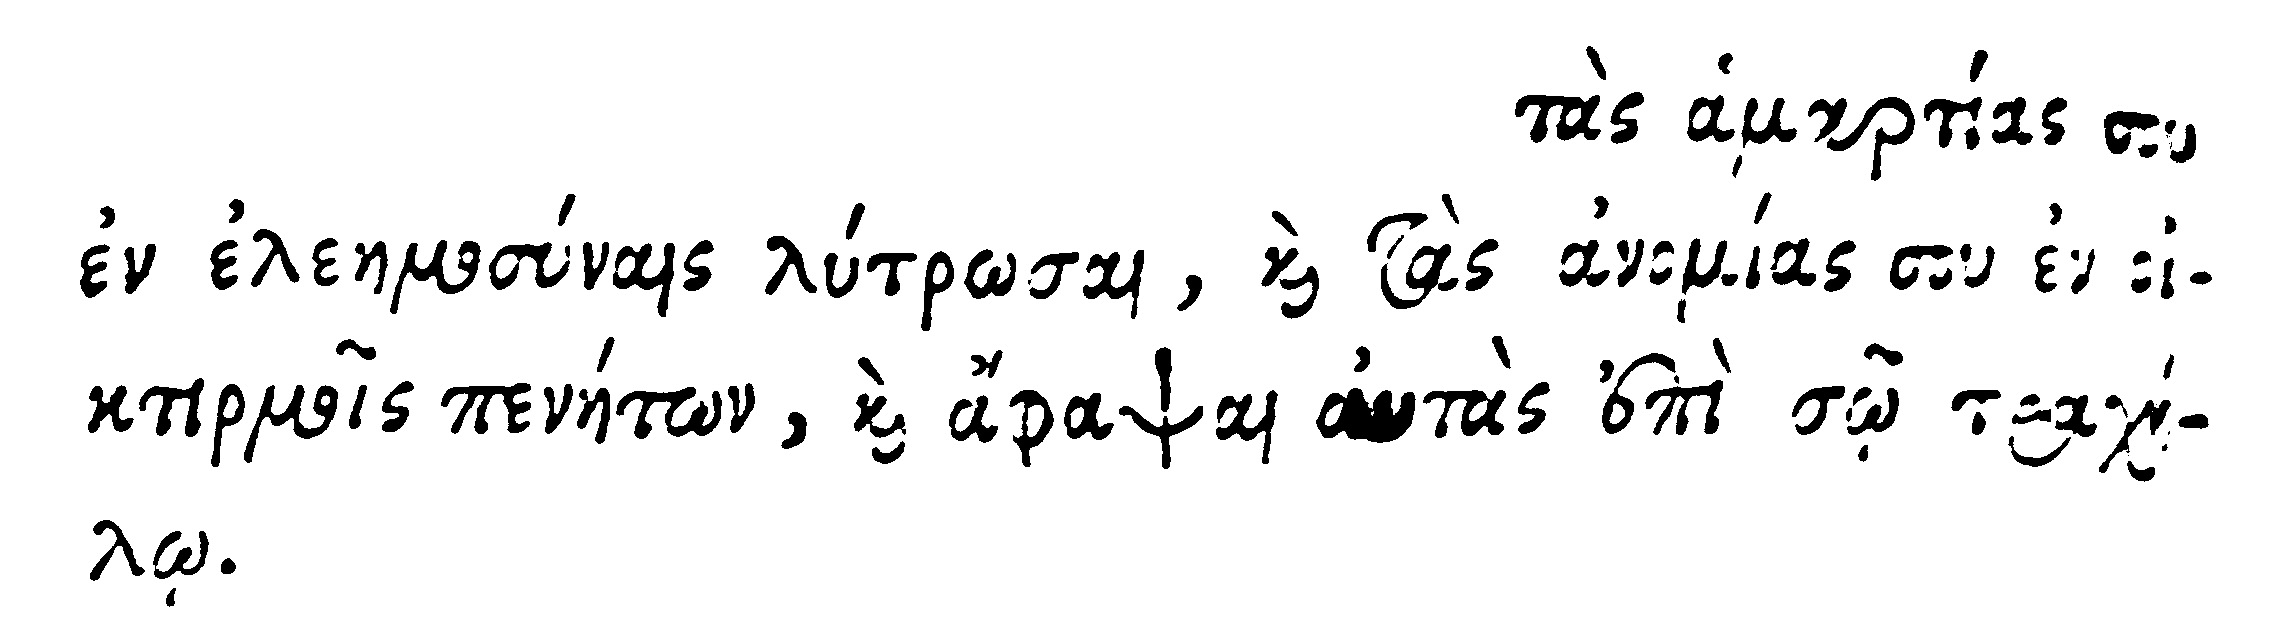 τὰς ἁμαρτίας σου
ἐν ἐλεημοσύναις λύτρωσαι, ϗ̀ τὰς ἀνομίας σου ἐν οἰ-
κτιρμοῖς πενήτων, ϗ̀ ἄραψαι αὐτὰς ἐπὶ σῷ τραχή-
λῳ.